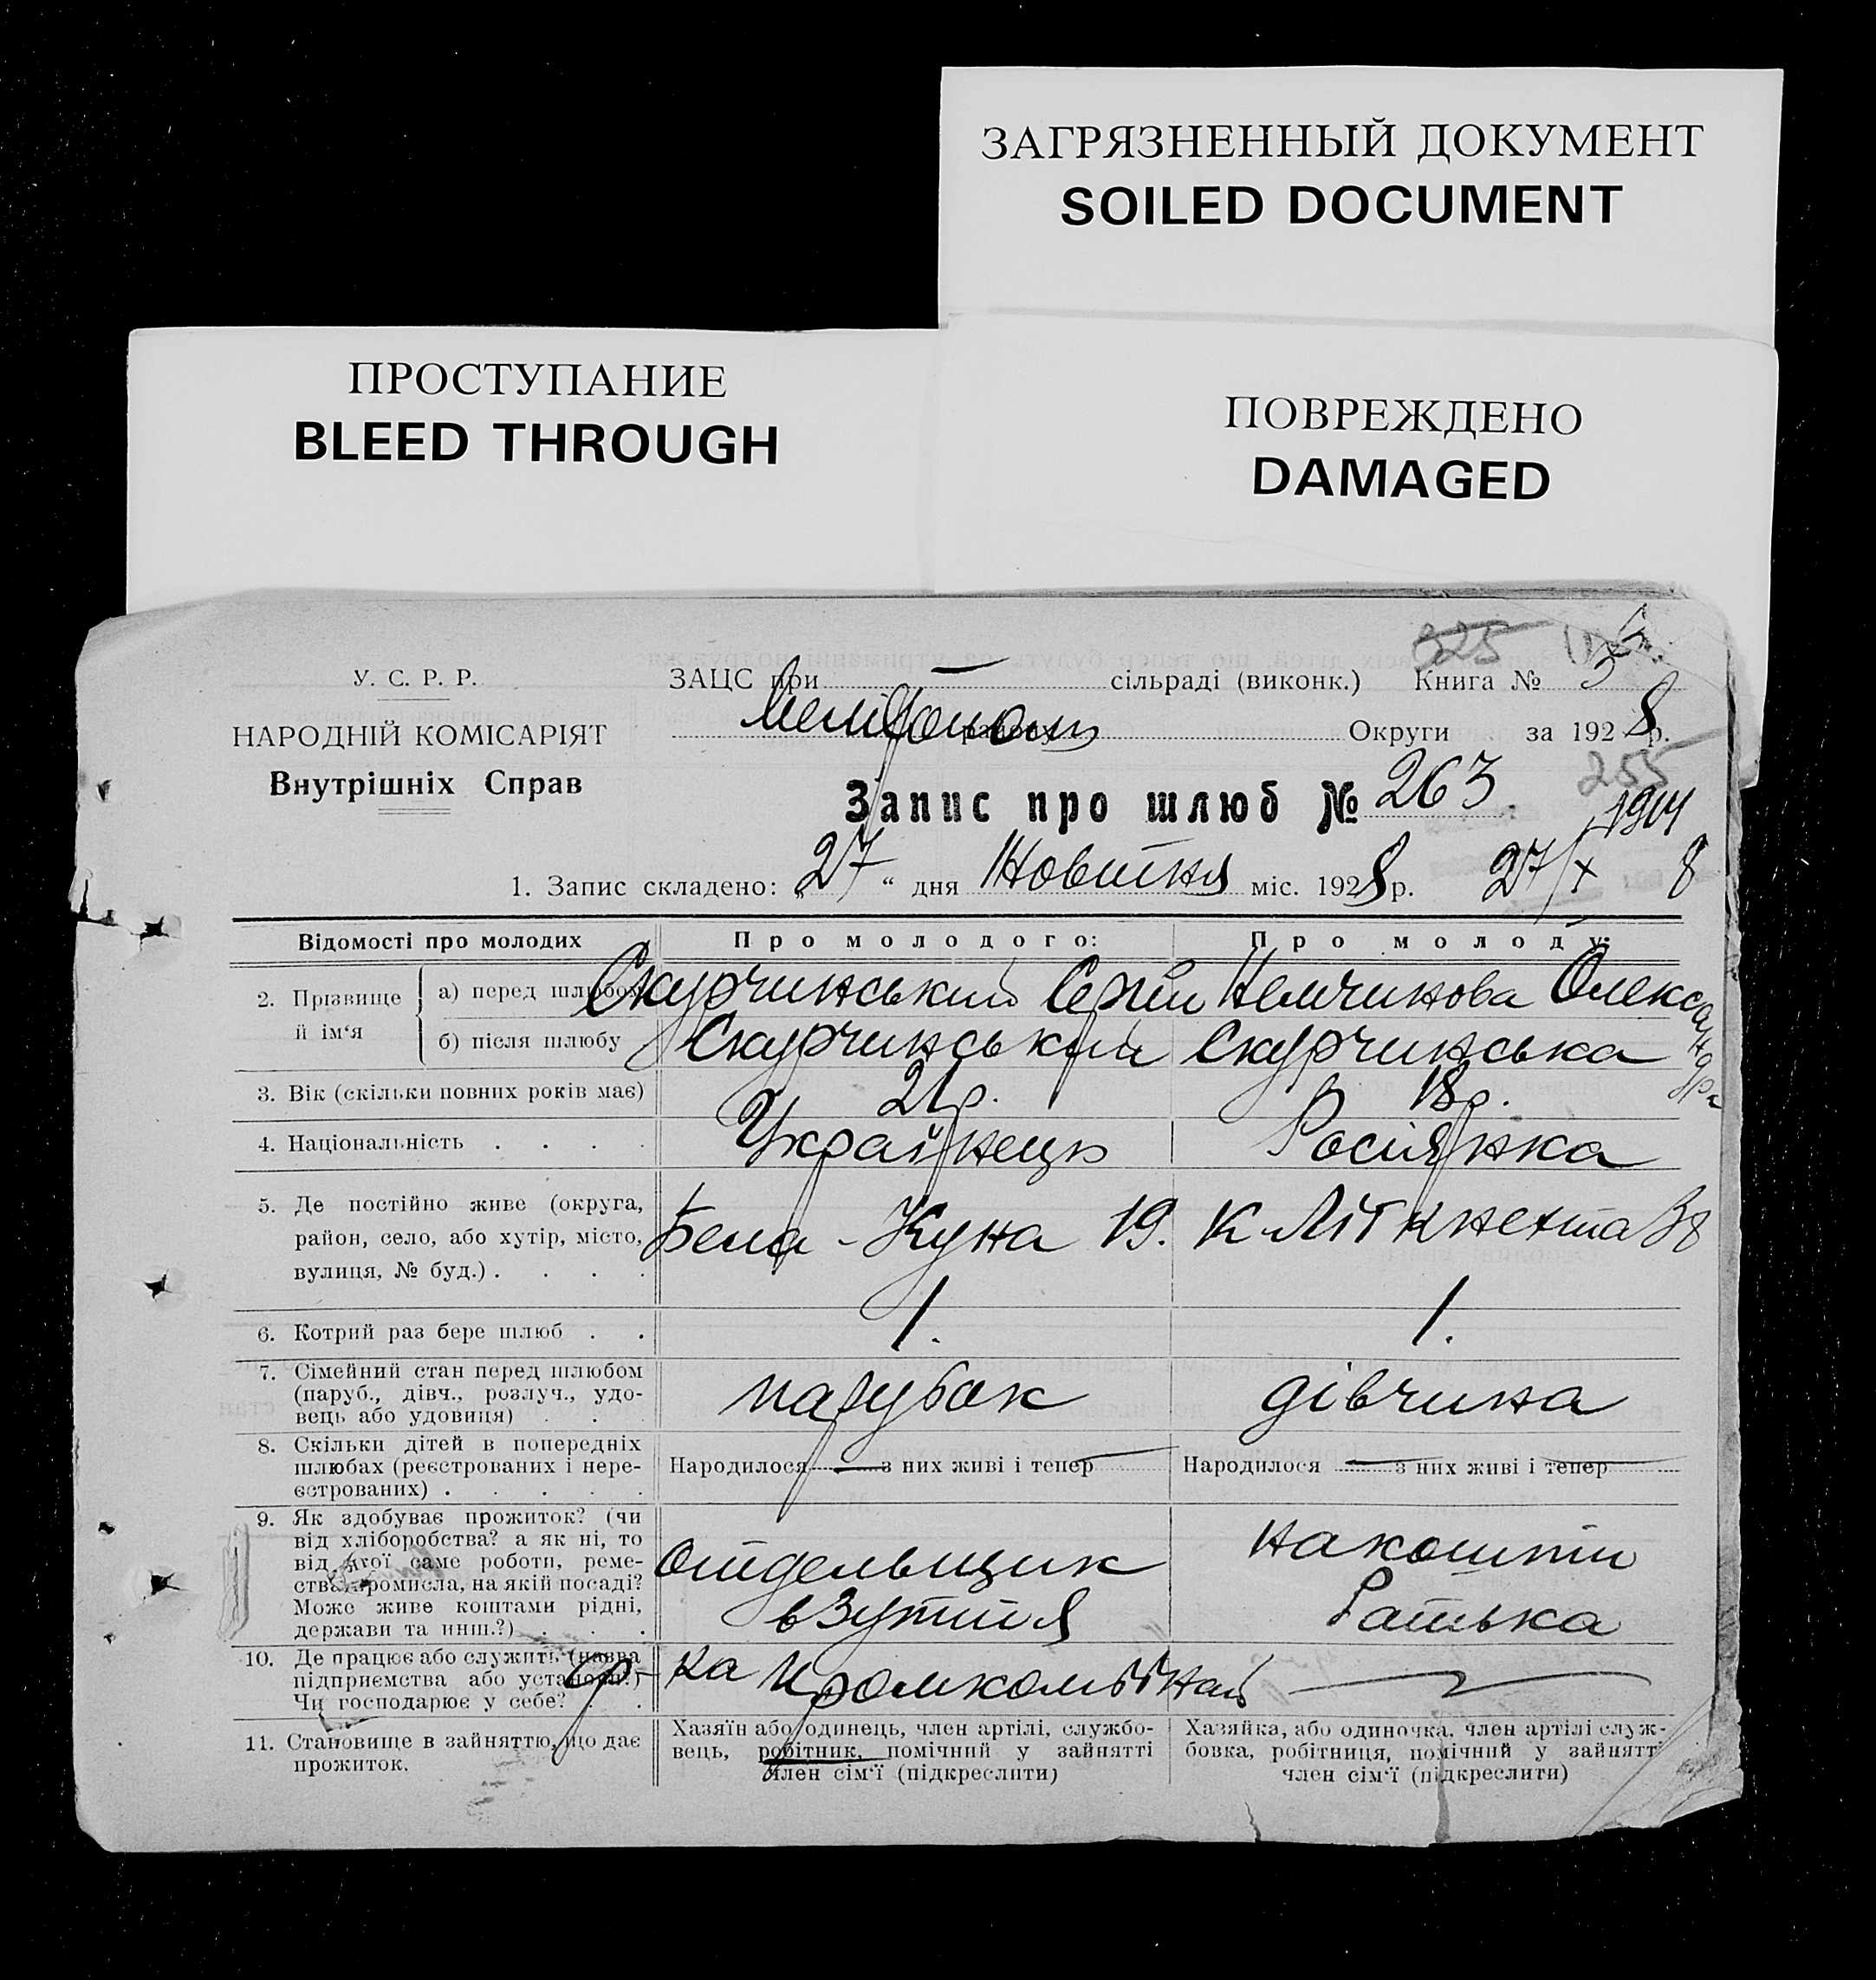 ЗАГРЯЗНЕННЫЙ ДОКУМЕНТ
SOILED DOCUMENT
ПРОСТУПАНИЕ
BLEED THROUGH
ПОВРЕЖДЕНО
DAMAGED
325
У. С. Р. Р.
ЗАЦС при — сільраді (виконк.) Книга № 3
НАРОДНІЙ КОМІСАРІЯТ
Мелітополь району Округи за 1928 р.
Внутрішніх Справ
255
Запис про шлюб № 263.
1904
1. Запис складено: „27“ дня Жовтня міс. 1928 р. 27/X 8
Відомості про молодих Про молодого: Про молоду:
2. Прізвище й ім‘я
а) перед шлюбом Скурчинський Сергій Немчинова Олександра
б) після шлюбу Скурчинський Скурчинська
3. Вік (скільки повних років має) 21 р. 18 р.
4. Національність . . . . Українець Росіянка
5. Де постійно живе (округа,
район, село, або хутір, місто,
вулиця, № буд.) . . . .
Бела-Куна 19. К Лібкнехта 38
6. Котрий раз бере шлюб . . 1. 1.
7. Сімейний стан перед шлюбом
(паруб., дівч., розлуч., удо-
вець або удовиця) . . .
парубок дівчина
8. Скільки дітей в попередніх
шлюбах (реєстрованих і нере-
єстрованих) . . . . .
Народилося — з них живі і тепер — Народилося — з них живі і тепер —
9. Як здобуває прожиток? (чи
від хліборобства? а як ні, то
від якої саме роботи, реме-
ства, промисла, на якій посаді?
Може живе коштами рідні,
держави та инш.?) . . .
отдельщик
взуття
на кошти
батька
10. Де працює або служить (назва
підприємства або установи?)
Чи господарює у себе? . .
ф-ка Промкомбінат —
11. Становище в зайняттю, що дає
прожиток.
Хазяїн або одинець, член артілі, службо-
вець, робітник, помічний у зайнятті
член сім‘ї (підкреслити)
Хазяйка, або одиночка, член артілі служ-
бовка, робітниця, помічний у зайнятті
член сім‘ї (підкреслити)